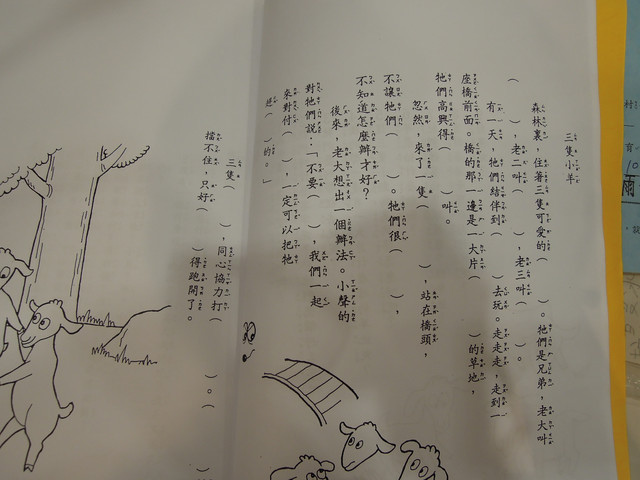 三隻小羊
森林裏，住著三隻可愛的（　　）。牠們是兄弟，老大叫
（　　），老二叫（　　），老三叫（　　）。
有一天，牠們結伴到（　　）去玩。走走走，走到一
座橋前面。橋的那一邊是一大片（　　）的草地，
牠們高興得（　　）叫。
忽然，來了一隻（　　），站在橋頭，
不讓牠們（　　）。牠們很（　　），
不知道怎麼辦才好？
後來，老大想出一個辦法。小聲的
對牠們說：「不要（　　），我們一起
來對付（　　），一定可以把牠
（　　）的。」
三隻（　　），同心協力打（　　）。（
擋不住，只好（　　）得跑開了。
村
一
有一
10
雨